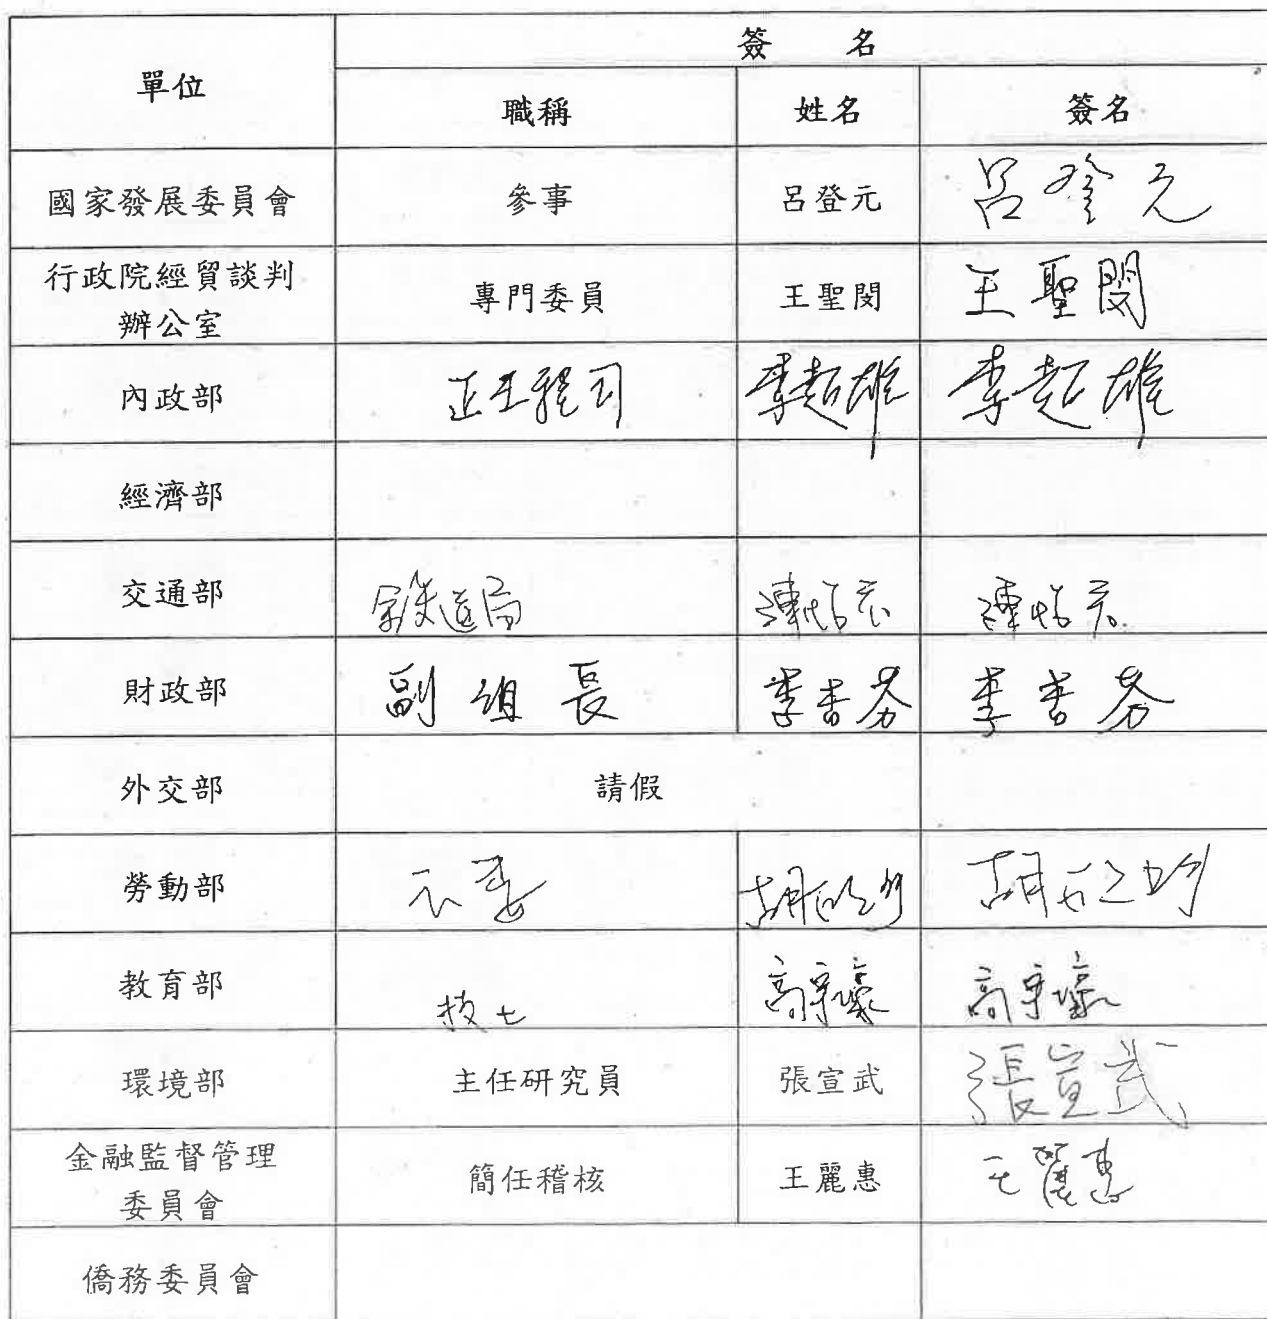 單位
簽名
職稱 姓名 簽名
國家發展委員會 參事 呂登元 呂登元
行政院經貿談判
辦公室
專門委員 王聖閔 王聖閔
內政部 正工程司 李超雄 李超雄
經濟部
交通部 鐵道局
財政部 副組長 李香芬 李香芬
外交部 請假
勞動部
教育部 技士 高宇壕 高宇壕
環境部 主任研究員 張宣武 張宣武
金融監督管理
委員會
簡任稽核 王麗惠 王麗惠
僑務委員會